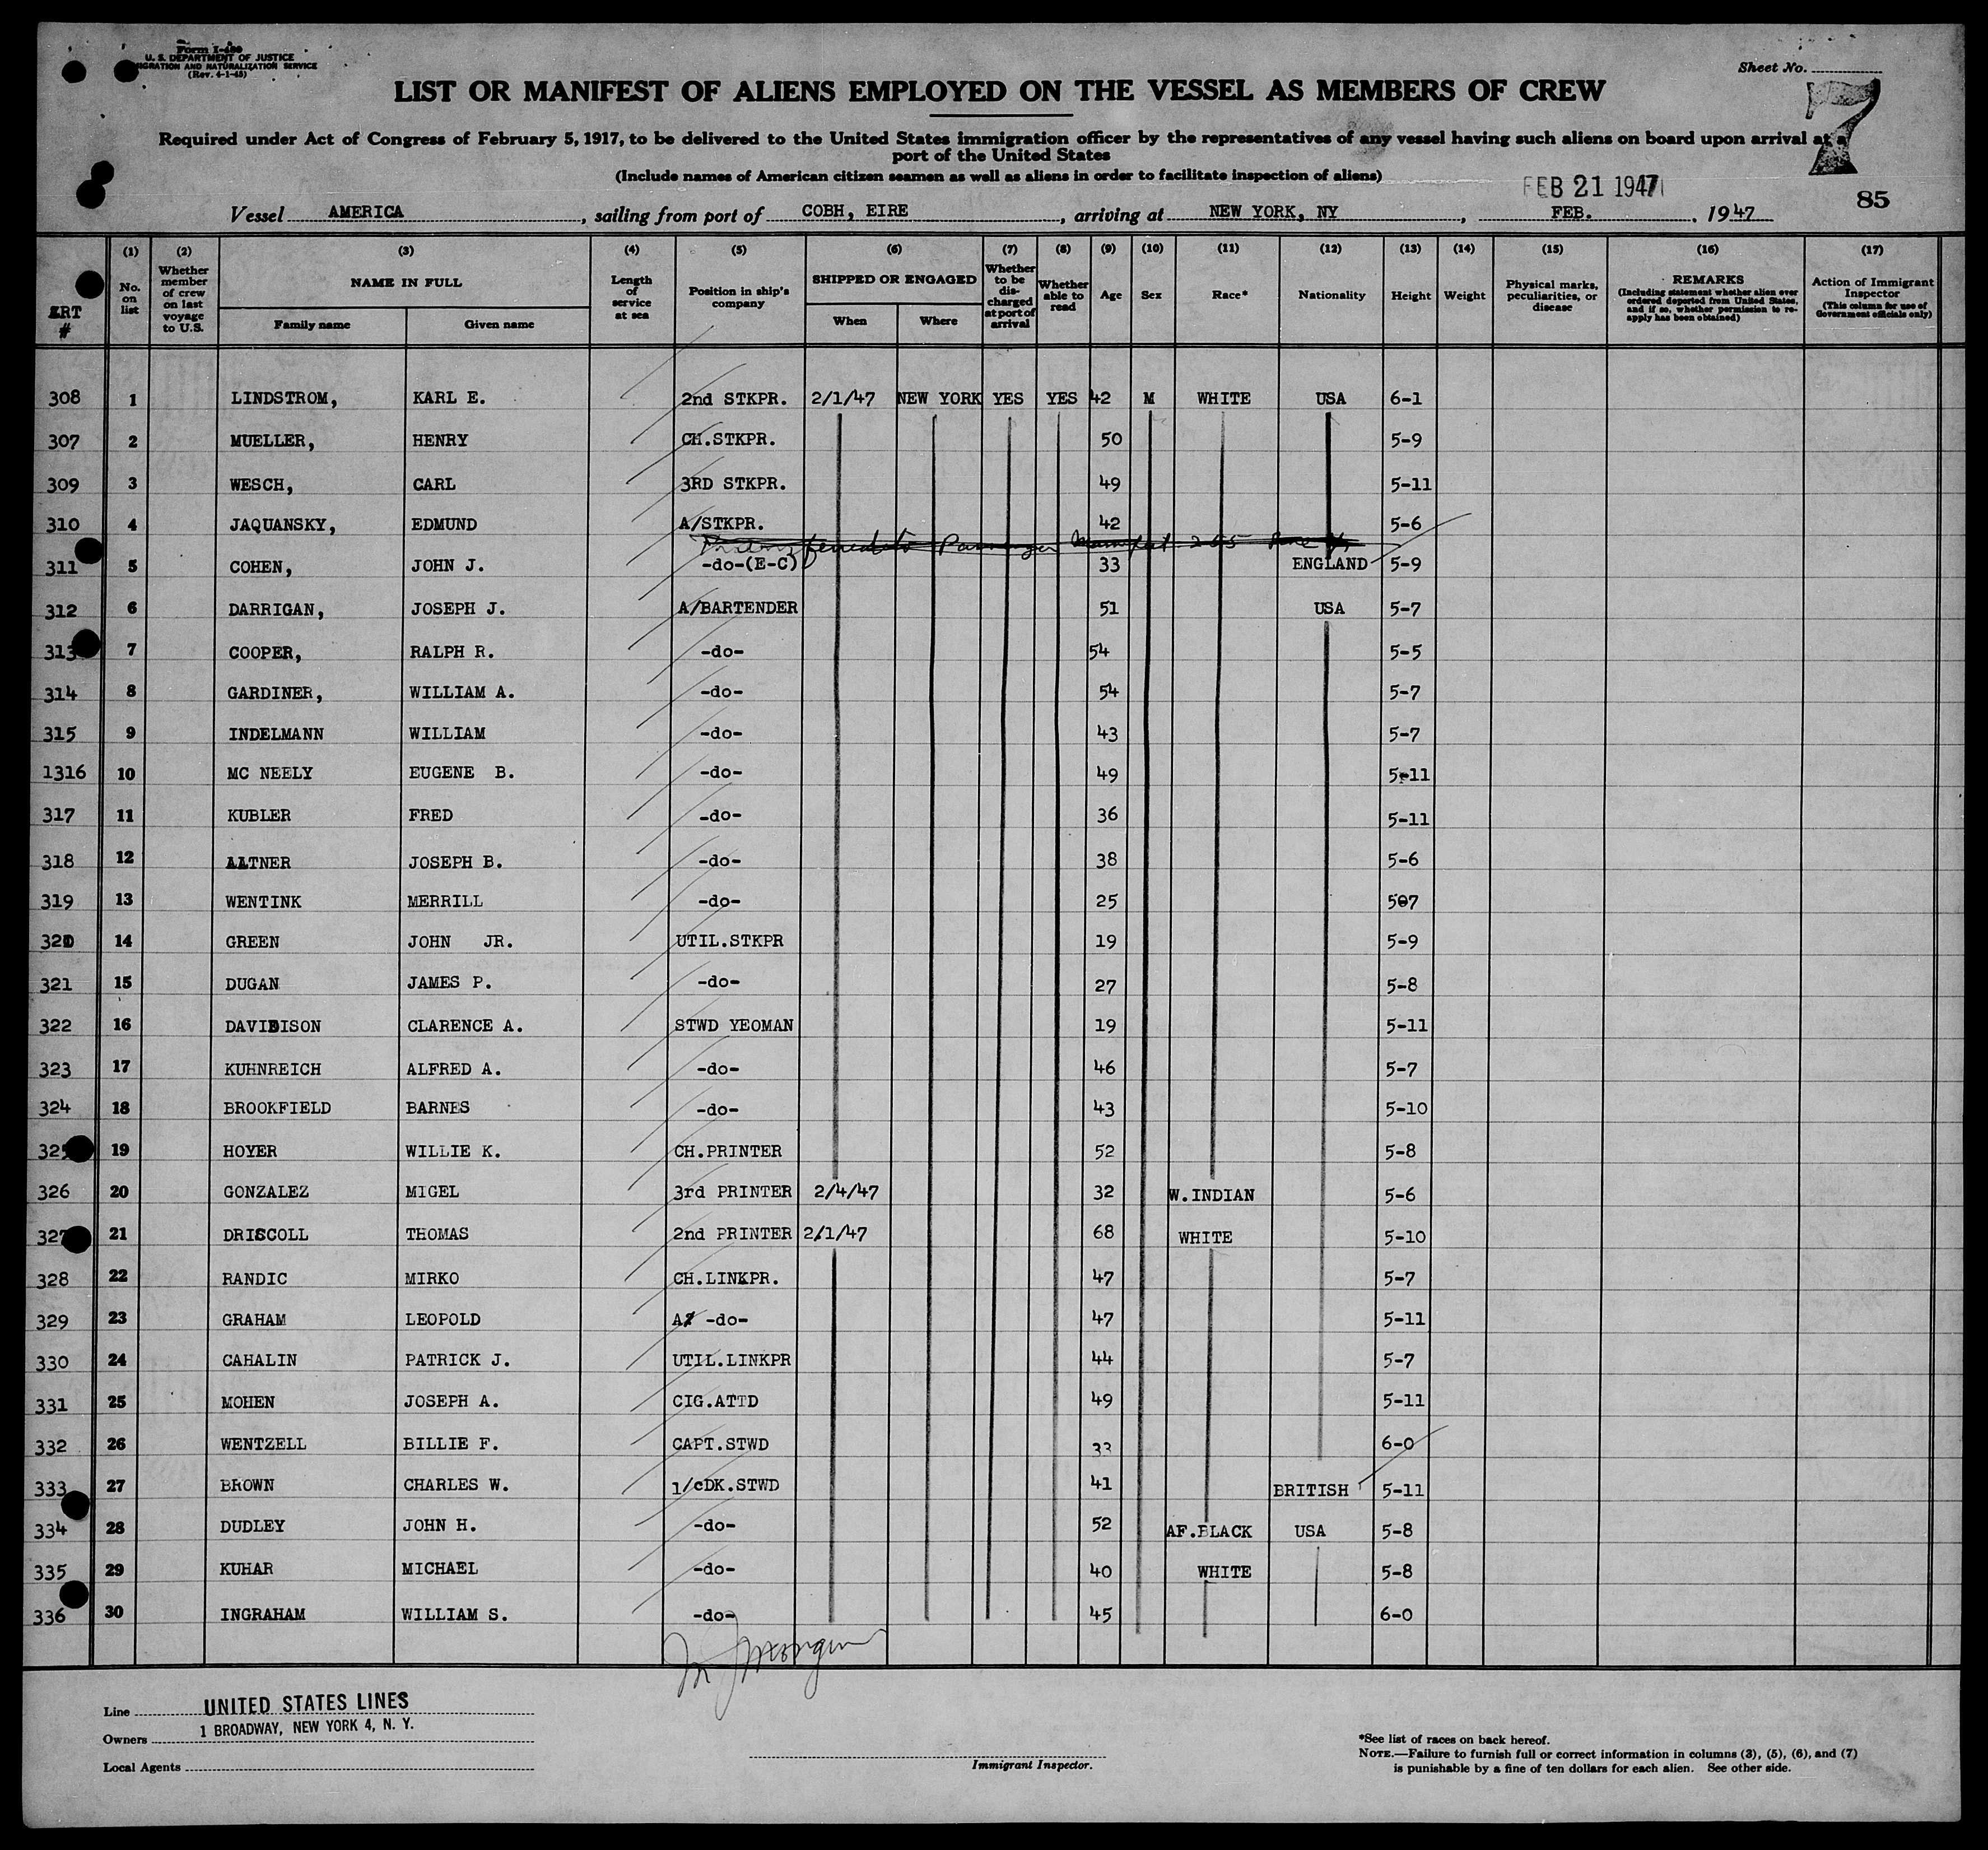 Form I-480
U. S. DEPARTMENT OF JUSTICE
IGRATION AND NATURALIZATION SERVICE
(Rev. 4-1-45)
Sheet No.
7
LIST OR MANIFEST OF ALIENS EMPLOYED ON THE VESSEL AS MEMBERS OF CREW
Required under Act of Congress of February 5, 1917, to be delivered to the United States immigration officer by the representatives of any vessel having such aliens on board upon arrival at a
port of the United States
(Include names of American citizen seamen as well as aliens in order to facilitate inspection of aliens)
FEB 21 1947
85
Vessel AMERICA, sailing from port of COBH, EIRE, arriving at NEW YORK, NY, FEB., 1947
ART # (1) No. on list (2) Whether member of crew on last voyage to U.S. (3) NAME IN FULL Family name Given name (4) Length of service at sea (5) Position in ship's company (6) SHIPPED OR ENGAGED When Where (7) Whether to be discharged at port of arrival (8) Whether able to read (9) Age (10) Sex (11) Race* (12) Nationality (13) Height (14) Weight (15) Physical marks, peculiarities, or disease (16) REMARKS (Including statement whether alien ever ordered deported from United States, and if so, whether permission to re-apply has been obtained) (17) Action of Immigrant Inspector (This column for use of Government officials only)
308 1 LINDSTROM, KARL E. 2nd STKPR. 2/1/47 NEW YORK YES YES 42 M WHITE USA 6-1
307 2 MUELLER, HENRY CH.STKPR. 50 5-9
309 3 WESCH, CARL 3RD STKPR. 49 5-11
310 4 JAQUANSKY, EDMUND A/STKPR. 42 5-6
Passenger Manifest
311 5 COHEN, JOHN J. -do-(E-C) 33 ENGLAND 5-9
312 6 DARRIGAN, JOSEPH J. A/BARTENDER 51 USA 5-7
313 7 COOPER, RALPH R. -do- 54 5-5
314 8 GARDINER, WILLIAM A. -do- 54 5-7
315 9 INDELMANN WILLIAM -do- 43 5-7
1316 10 MC NEELY EUGENE B. -do- 49 5-11
317 11 KUBLER FRED -do- 36 5-11
318 12 ALTNER JOSEPH B. -do- 38 5-6
319 13 WENTINK MERRILL -do- 25 5-7
320 14 GREEN JOHN JR. UTIL.STKPR 19 5-9
321 15 DUGAN JAMES P. -do- 27 5-8
322 16 DAVIDISON CLARENCE A. STWD YEOMAN 19 5-11
323 17 KUHNREICH ALFRED A. -do- 46 5-7
324 18 BROOKFIELD BARNES -do- 43 5-10
325 19 HOYER WILLIE K. CH.PRINTER 52 5-8
326 20 GONZALEZ MIGEL 3rd PRINTER 2/4/47 32 W.INDIAN 5-6
327 21 DRISCOLL THOMAS 2nd PRINTER 2/1/47 68 WHITE 5-10
328 22 RANDIC MIRKO CH.LINKPR. 47 5-7
329 23 GRAHAM LEOPOLD A/ -do- 47 5-11
330 24 CAHALIN PATRICK J. UTIL.LINKPR 44 5-7
331 25 MOHEN JOSEPH A. CIG.ATTD 49 5-11
332 26 WENTZELL BILLIE F. CAPT.STWD 33 6-0
333 27 BROWN CHARLES W. 1/cDK.STWD 41 BRITISH 5-11
334 28 DUDLEY JOHN H. -do- 52 AF.BLACK USA 5-8
335 29 KUHAR MICHAEL -do- 40 WHITE 5-8
336 30 INGRAHAM WILLIAM S. -do- 45 6-0
Line UNITED STATES LINES
Owners 1 BROADWAY, NEW YORK 4, N. Y.
Local Agents
Immigrant Inspector.
*See list of races on back hereof.
NOTE.—Failure to furnish full or correct information in columns (3), (5), (6), and (7)
is punishable by a fine of ten dollars for each alien. See other side.